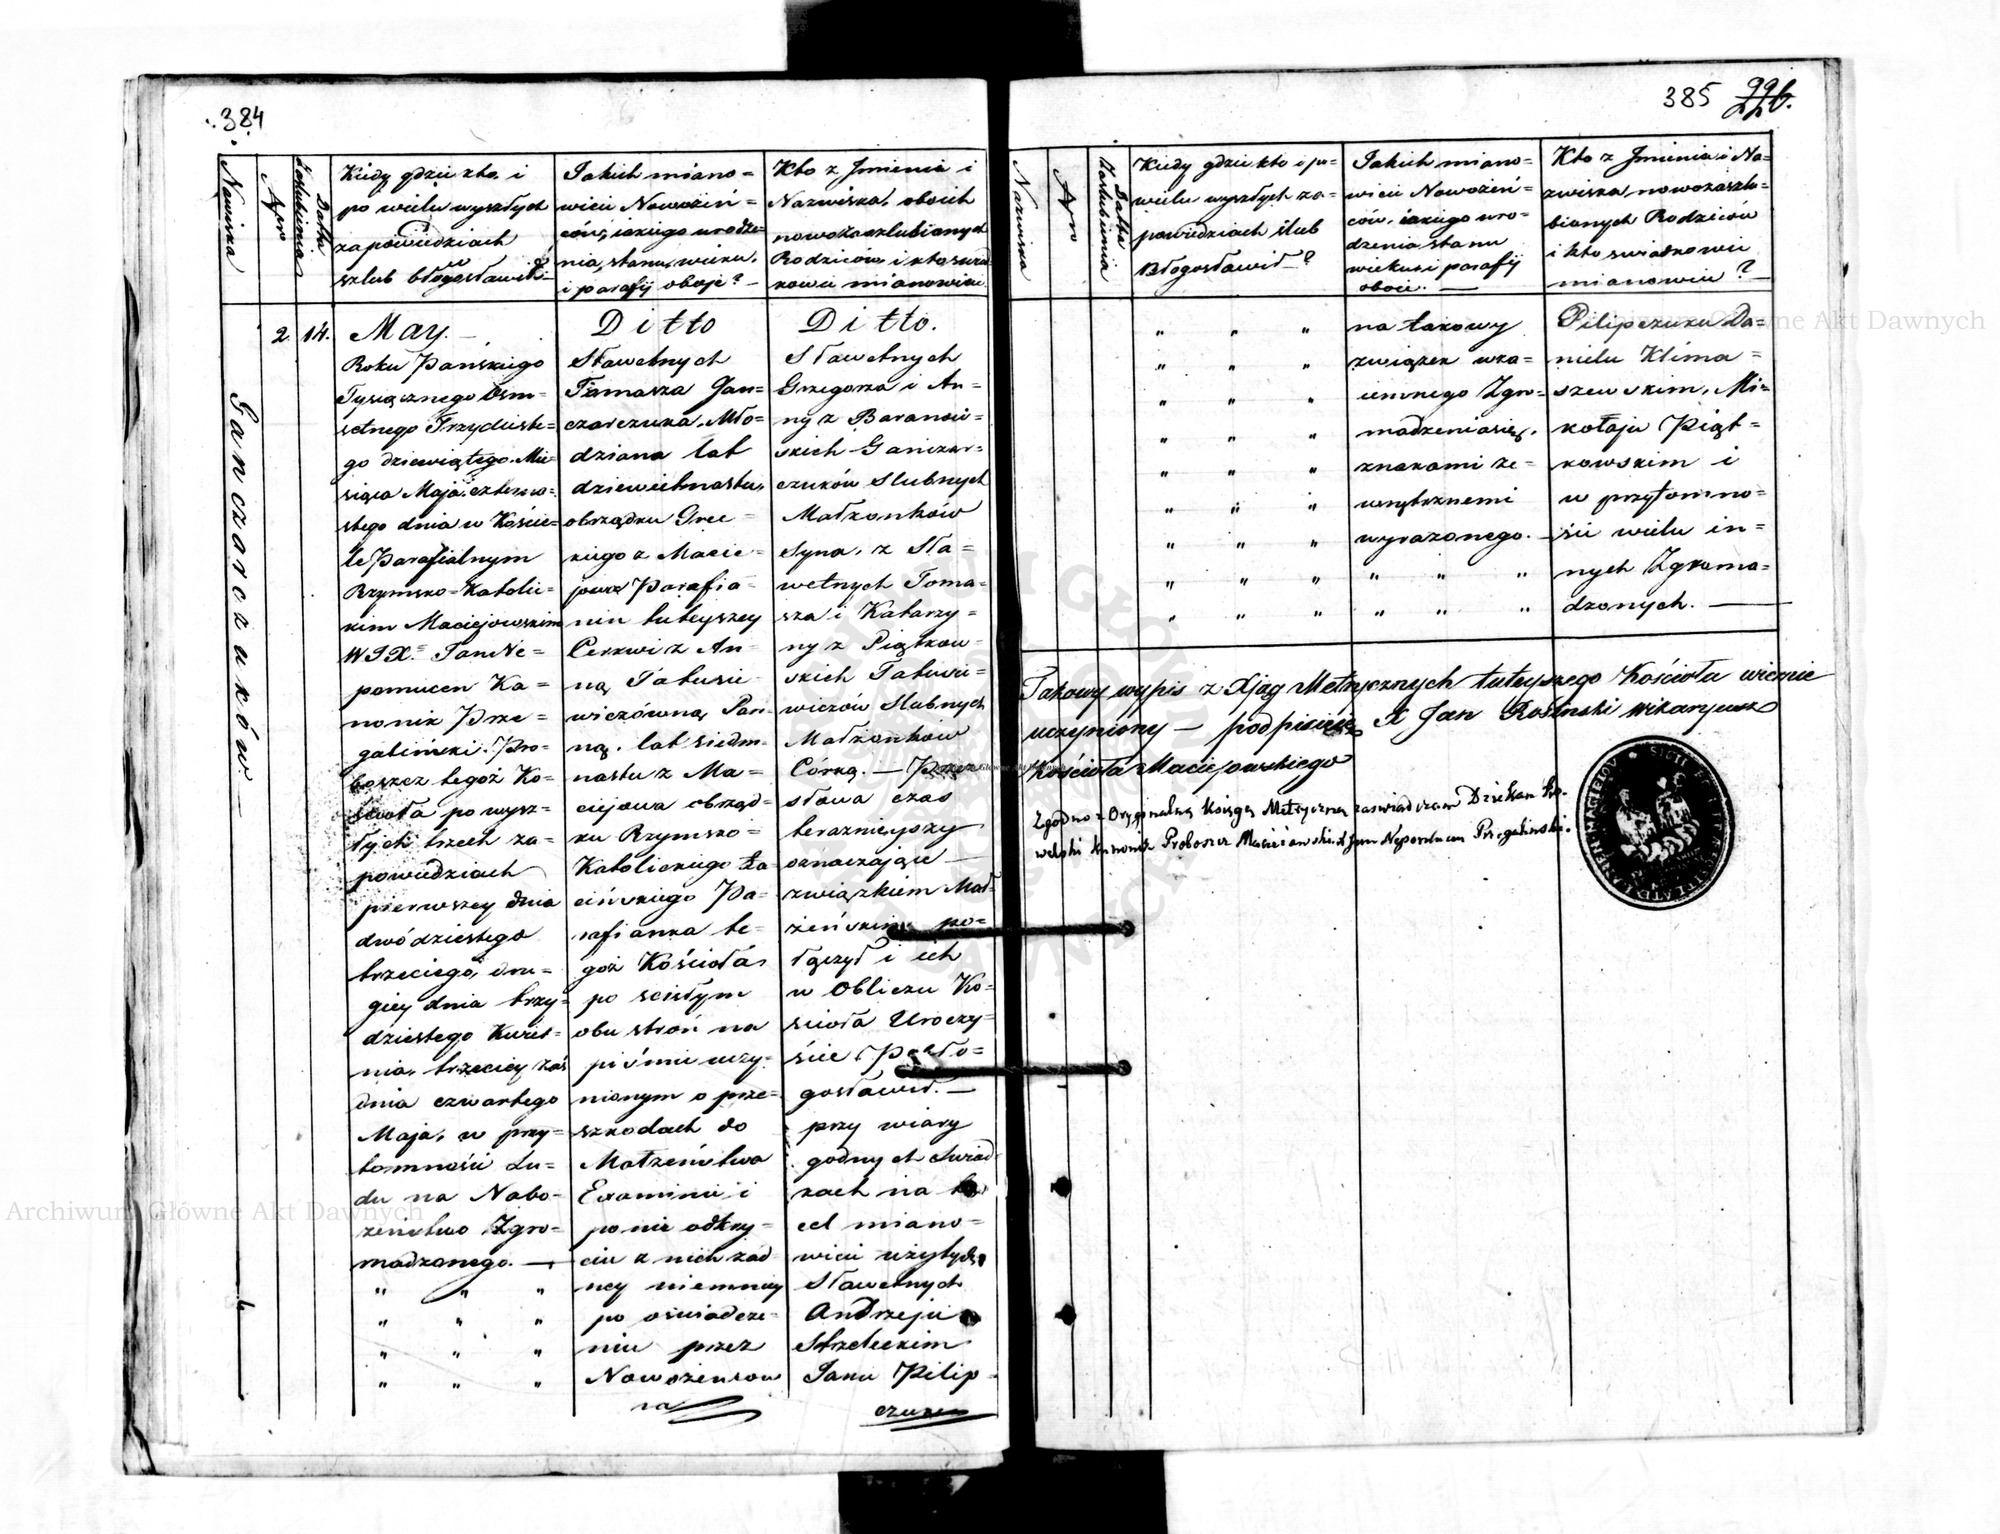 384
Nazwiska
Nro
Datta Zaślubienia
Kiedy gdzie kto i
po wielu wyszłych
zapowiedziach
szlub błogosławił?
Jakich miano=
wicie Nowożeń=
ców, iakiego urodze=
nia, stanu, wieku,
i parafij oboje? —
Kto z Jmienia i
Nazwiska, oboich
nowozaszlubionych
Rodziców i kto świad
kowie mianowicie
Ganczarczuków —
2. 14.
May. —
Roku Pańskiego
Tysiącznego Osm=
setnego Trzydzieste=
go dziewiątego Mie=
siąca Maja czterna=
stego dnia w Koście=
le Parafialnym
Rzymsko=Katolic=
kim Maciejowskim
WJX. Jan Ne=
pomucen Ka=
nonik Prze=
galiński Pro=
boszcz tegoż Ko=
ścioła po wysz=
łych trzech za=
powiedziach
pierwszey dnia
dwódziestego
trzeciego, dru=
giey dnia trzy=
dziestego Kwiet=
nia, trzeciey zaś
dnia czwartego
Maja, w przy=
tomności Lu=
du na Nabo=
żeństwo Zgro=
madzonego. —
" " "
" " "
" " "
" " "
Ditto
Sławetnych
Tomasza Gan=
czarczuka, Mło=
dziana lat
dziewietnastu,
obrządku Grec=
kiego z Macie=
jowa Parafia=
nin tuteyszey
Cerkwi z An=
ną Jabusie
wiczówną Pan=
ną, lat siedm=
nastu z Ma=
ciejowa obrząd=
ku Rzymsko=
Katolickiego Ła
cińskiego Pa=
rafianka te=
goż Kościoła,
po scisłym
obu stron na
piśmie uczy=
nionym o prze=
szkodach do
Małżeństwa
Examinie i
po nie odkry=
ciu z nich żad=
ney niemniey
po oświadcze=
niu przez
Nowożencow
na
Ditto.
Sławetnych
Grzegorza i An=
ny z Baranow=
skich Ganczar=
czuków Slubnych
Małżonków
Syna, z Sła=
wetnych Toma=
sza i Katarzy=
ny z Piątkow=
skich Jabusie=
wiczów Slubnych
Małżonków
Córką. — Przez
słowa czas
teraznieyszy
oznaczające —
związkiem Mał=
żeńskim po=
łączył i ich
w Obliczu Ko=
ścioła Uroczy=
ście Pobło=
gosławił. —
przy wiary
godnych Swiad=
kach na
cel miano=
wicie użytych
Sławetnych
Andrzeju
Strzeleckim
Janu Pilip=
czuku
385 226.
Nazwiska
Nro
Datta Zaślubienia
Kiedy gdzie kto i po=
wielu wyszłych za=
powiedziach ślub
Błogosławił—?
Jakich miano=
wicie Nowożeń=
ców, iakiego uro=
dzenia stanu
wieku i parafij
oboie. —
Kto z Jmienia i Na=
zwiska, nowozaszlu=
bionych Rodziców
i kto swiadkowie
mianowicie? —
" " "
" " "
" " "
" " "
" " "
" " "
" " "
" " "
" " "
na takowy
związek wza=
iemnego Zgro=
madzenia się,
znakami ze=
wnętrznemi
wyrażonego. —
" " "
" " "
Pilipczuku Da=
nielu Klima=
szewskim, Mi=
kołaju Piąt=
kowskim i
w przytomno=
ści wielu in=
nych Zgroma=
dzonych. —
Takowy wypis z Xjąg Metrycznych tuteyszego Kościoła wiernie
uczyniony — podpisuję X Jan Rośinski Wikaryusz
Kościoła Maciejowskiego
Zgodno z Oryginalną Księgą Metryczną zaswiadczam Dziekan Ko=
welski Kanonik Proboszcz Maciejowski X Jan Nepomucen Przegaliński.
Archiwum Główne Akt Dawnych
Archiwum Główne Akt Dawnych